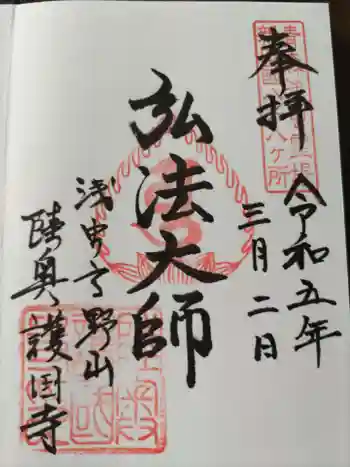 奉拝
令和五年
三月二日
弘法大師
浅虫高野山
陸奥護国寺